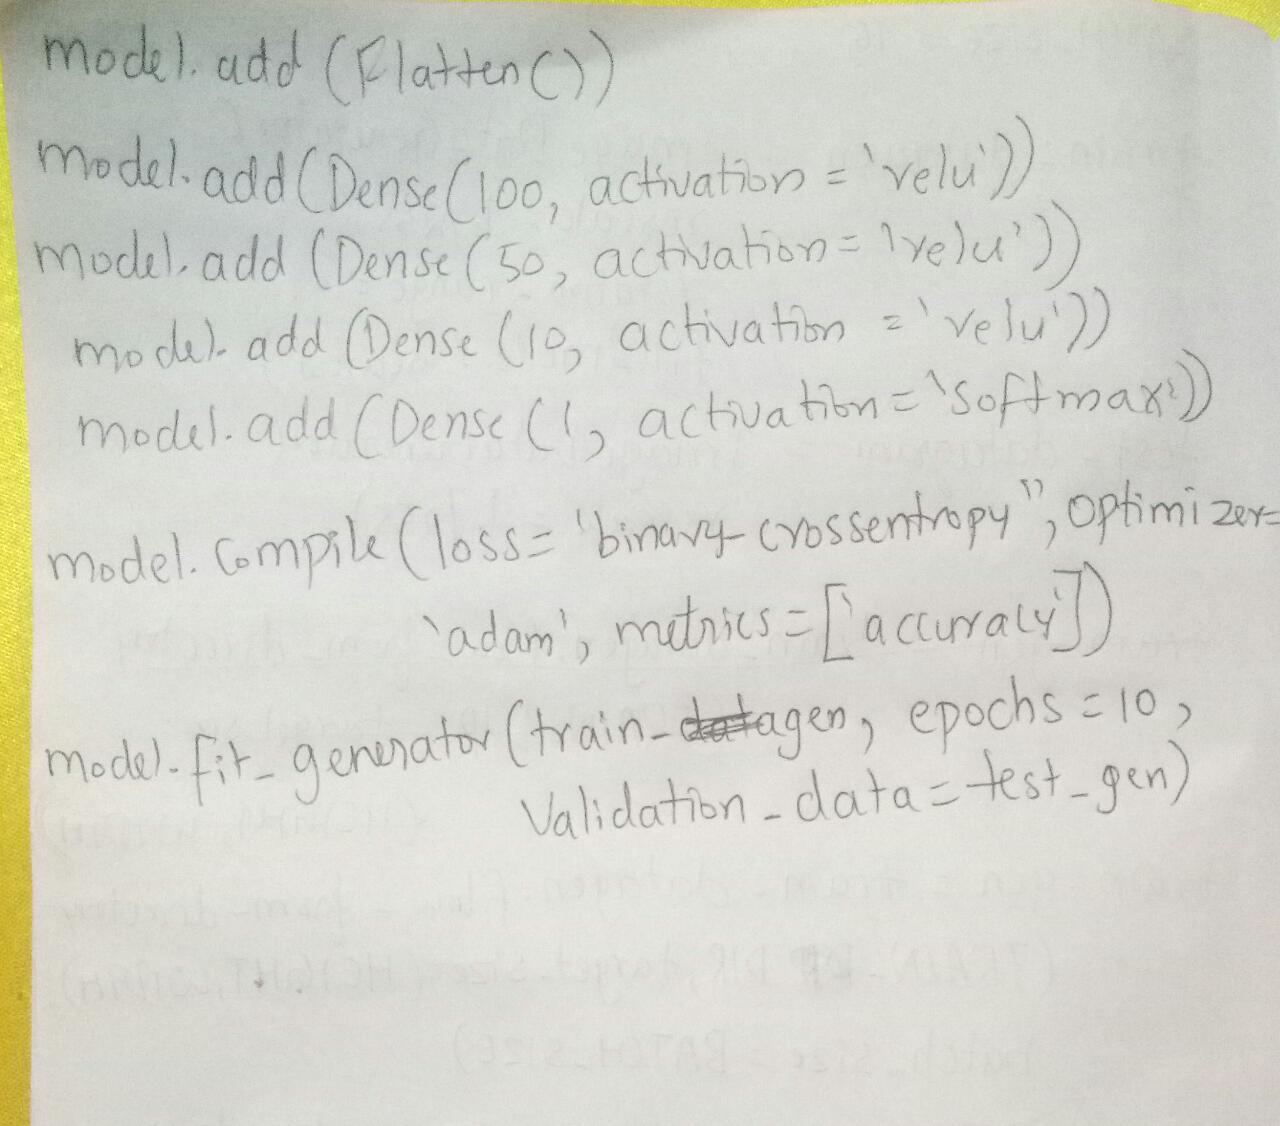 model.add(Flatten())
model.add(Dense(100, activation = 'relu'))
model.add(Dense(50, activation = 'relu'))
model.add(Dense(10, activation = 'relu'))
model.add(Dense(1, activation = 'softmax'))
model.compile(loss = "binary_crossentropy", optimizer=
'adam', metrics = ['accuracy'])
model.fit_generator(train_gen, epochs = 10,
Validation_data = test_gen)